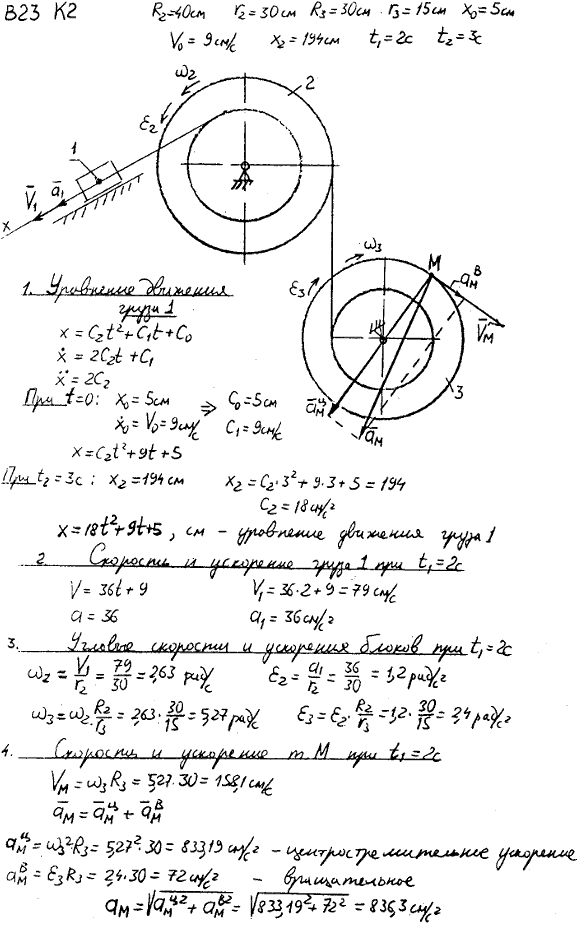 В23 К2 R₂=40см r₂=30см R₃=30см r₃=15см x₀=5см
V₀=9см/с x₂=194см t₁=2с t₂=3с
ω₂
2
ε₂
1
V̄₁ ā₁
x
ω₃
M
ε₃
a_M^В
V̄_M
ā_M^Ц
ā_M
3
1. Уровнение движения
груза 1
x=C₂t²+C₁t+C₀
ẋ=2C₂t+C₁
ẍ=2C₂
При t=0: x₀=5см ⇒ C₀=5см
ẋ₀=V₀=9см/с C₁=9см/с
x=C₂t²+9t+5
При t₂=3с: x₂=194см x₂=C₂·3²+9·3+5=194
C₂=18см/с²
x=18t²+9t+5, см – уровнение движения груза 1
2. Скорость и ускорение груза 1 при t₁=2с
V=36t+9 V₁=36·2+9=79см/с
a=36 a₁=36см/с²
3. Угловые скорости и ускорения блоков при t₁=2с
ω₂=V₁/r₂=79/30=2,63 рад/с ε₂=a₁/r₂=36/30=1,2рад/с²
ω₃=ω₂·R₂/r₃=2,63·30/15=5,27рад/с ε₃=ε₂·R₂/r₃=1,2·30/15=2,4рад/с²
4. Скорость и ускорение т.М при t₁=2с
V_M=ω₃R₃=5,27·30=158,1см/с
ā_M=ā_M^Ц+ā_M^В
a_M^Ц=ω₃²R₃=5,27²·30=833,19см/с² – центростремительное ускорение
a_M^В=ε₃R₃=2,4·30=72см/с² – вращательное
a_M=√(a_M^Ц²+a_M^В²)=√(833,19²+72²)=836,3см/с²